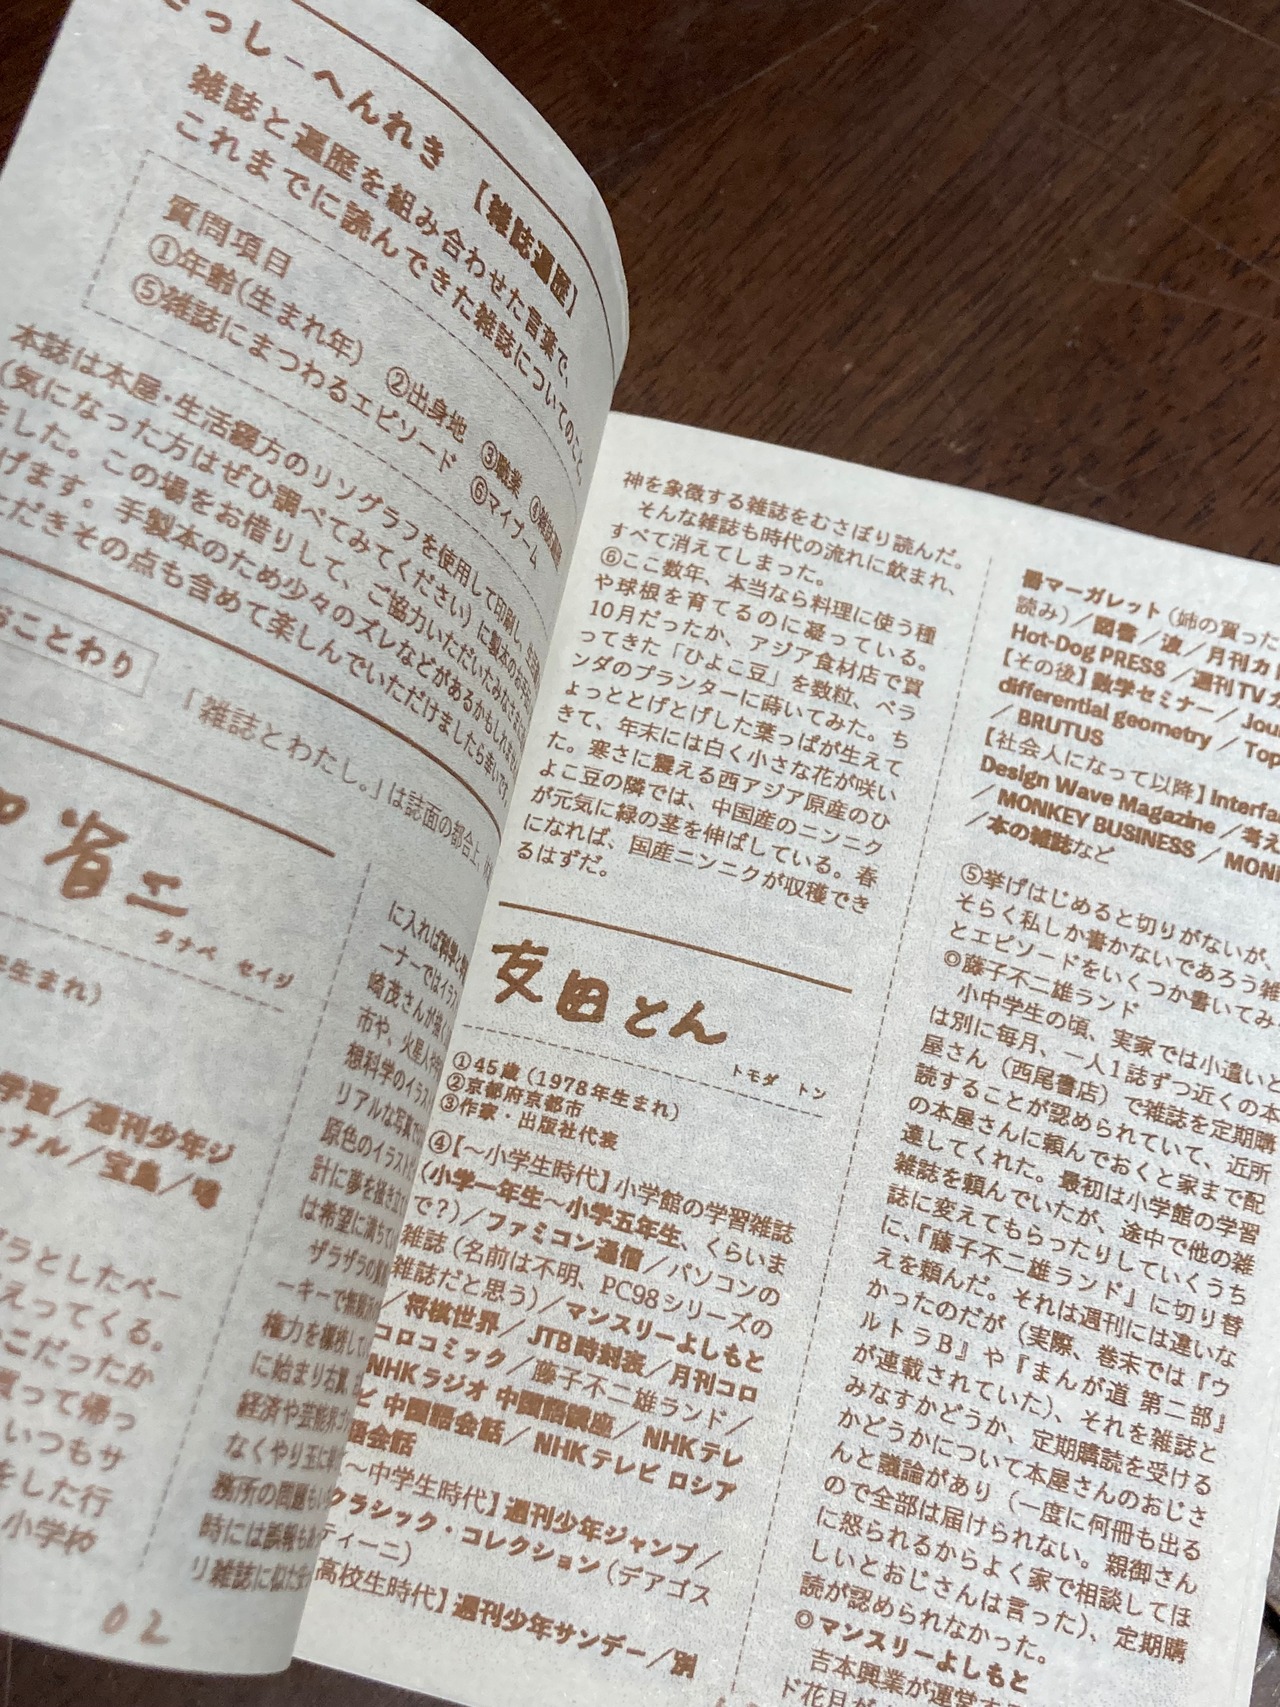 っしーへんれき 【雑誌遍歴】
雑誌と遍歴を組み合わせた言葉で、
これまでに読んできた雑誌についてのこと
質問項目
①年齢(生まれ年) ②出身地 ③職業 ④雑誌遍歴
⑤雑誌にまつわるエピソード ⑥マイブーム
本誌は本屋・生活綴方のリソグラフを使用して印刷し、
(気になった方はぜひ調べてみてください)に製本の
ました。この場をお借りして、ご協力いただいたみなさまに
げます。手製本のため少々のズレなどがあるかもしれません
ただきその点も含めて楽しんでいただけましたら幸いです
おことわり
「雑誌とわたし。」は誌面の都合上、
省二
タナベ セイジ
生まれ)
学習/週刊少年ジ
ーナル/宝島/噂
ザラとしたペー
えってくる。
こだったか
買って帰っ
いつもサ
をした行
小学校
に入れば科学と
ーナーではイラス
崎茂さんが描く
市や、火星人や
想科学のイラス
リアルな写真で
原色のイラスト
計に夢を掻き立
は希望に満ちて
ザラザラの
ーキーで無
権力を標榜して
に始まり右翼
経済や芸能界
なくやり玉に
務所の問題も
時には誤報もあ
リ雑誌に似た
02
神を象徴する雑誌をむさぼり読んだ。
そんな雑誌も時代の流れに飲まれ、
すべて消えてしまった。
⑥ここ数年、本当なら料理に使う種
や球根を育てるのに凝っている。
10月だったか、アジア食材店で買
ってきた「ひよこ豆」を数粒、ベラ
ンダのプランターに蒔いてみた。ち
ょっととげとげした葉っぱが生えて
きて、年末には白く小さな花が咲い
た。寒さに震える西アジア原産のひ
よこ豆の隣では、中国産のニンニク
が元気に緑の茎を伸ばしている。春
になれば、国産ニンニクが収穫でき
るはずだ。
友田とん
トモダ トン
①45歳(1978年生まれ)
②京都府京都市
③作家・出版社代表
④【〜小学生時代】小学館の学習雑誌
(小学一年生〜小学五年生、くらいま
で?)/ファミコン通信/パソコンの
雑誌(名前は不明、PC98シリーズの
雑誌だと思う)/マンスリーよしもと
/将棋世界/JTB時刻表/月刊コロ
コロコミック/藤子不二雄ランド/
NHKラジオ 中国語講座/NHKテレ
ビ 中国語会話/NHKテレビ ロシア
語会話
【〜中学生時代】週刊少年ジャンプ/
クラシック・コレクション(デアゴス
ティーニ)
高校生時代】週刊少年サンデー/別
冊マーガレット(姉の買った
読み)/図書/波/月刊カド
Hot-Dog PRESS/週刊TVガ
【その後】数学セミナー/Jou
differential geometry/Top
/BRUTUS
【社会人になって以降】Interfa
Design Wave Magazine/考え
/MONKEY BUSINESS/MON
/本の雑誌など
⑤挙げはじめると切りがないが、
そらく私しか書かないであろう雑
とエピソードをいくつか書いてみ
◎藤子不二雄ランド
小中学生の頃、実家では小遣いと
は別に毎月、一人1誌ずつ近くの本
屋さん(西尾書店)で雑誌を定期購
読することが認められていて、近所
の本屋さんに頼んでおくと家まで配
達してくれた。最初は小学館の学習
雑誌を頼んでいたが、途中で他の雑
誌に変えてもらったりしていくうち
に、『藤子不二雄ランド』に切り替
えを頼んだ。それは週刊には違いな
かったのだが(実際、巻末では『ウ
ルトラB』や『まんが道 第二部』
が連載されていた)、それを雑誌と
みなすかどうか、定期購読を受ける
かどうかについて本屋さんのおじさ
んと議論があり(一度に何冊も出る
ので全部は届けられない。親御さん
に怒られるからよく家で相談してほ
しいとおじさんは言った)、定期購
読が認められなかった。
◎マンスリーよしもと
吉本興業が運営す
ド花月が